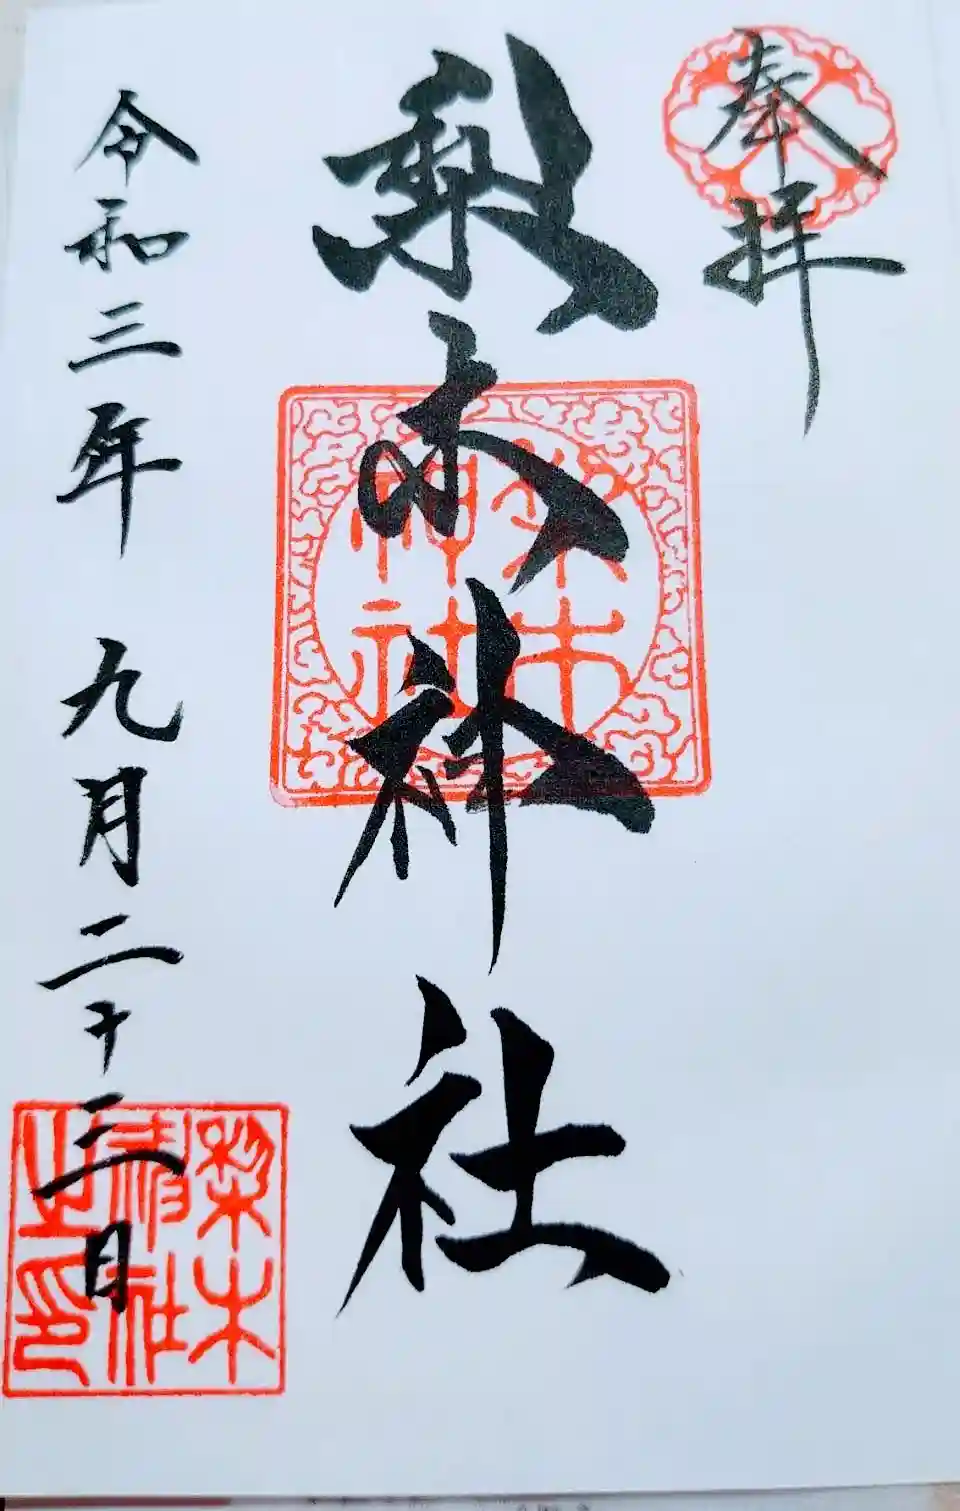 奉拝
梨木神社
梨木
神社
令和三年 九月二十三日
梨木
神社
之印